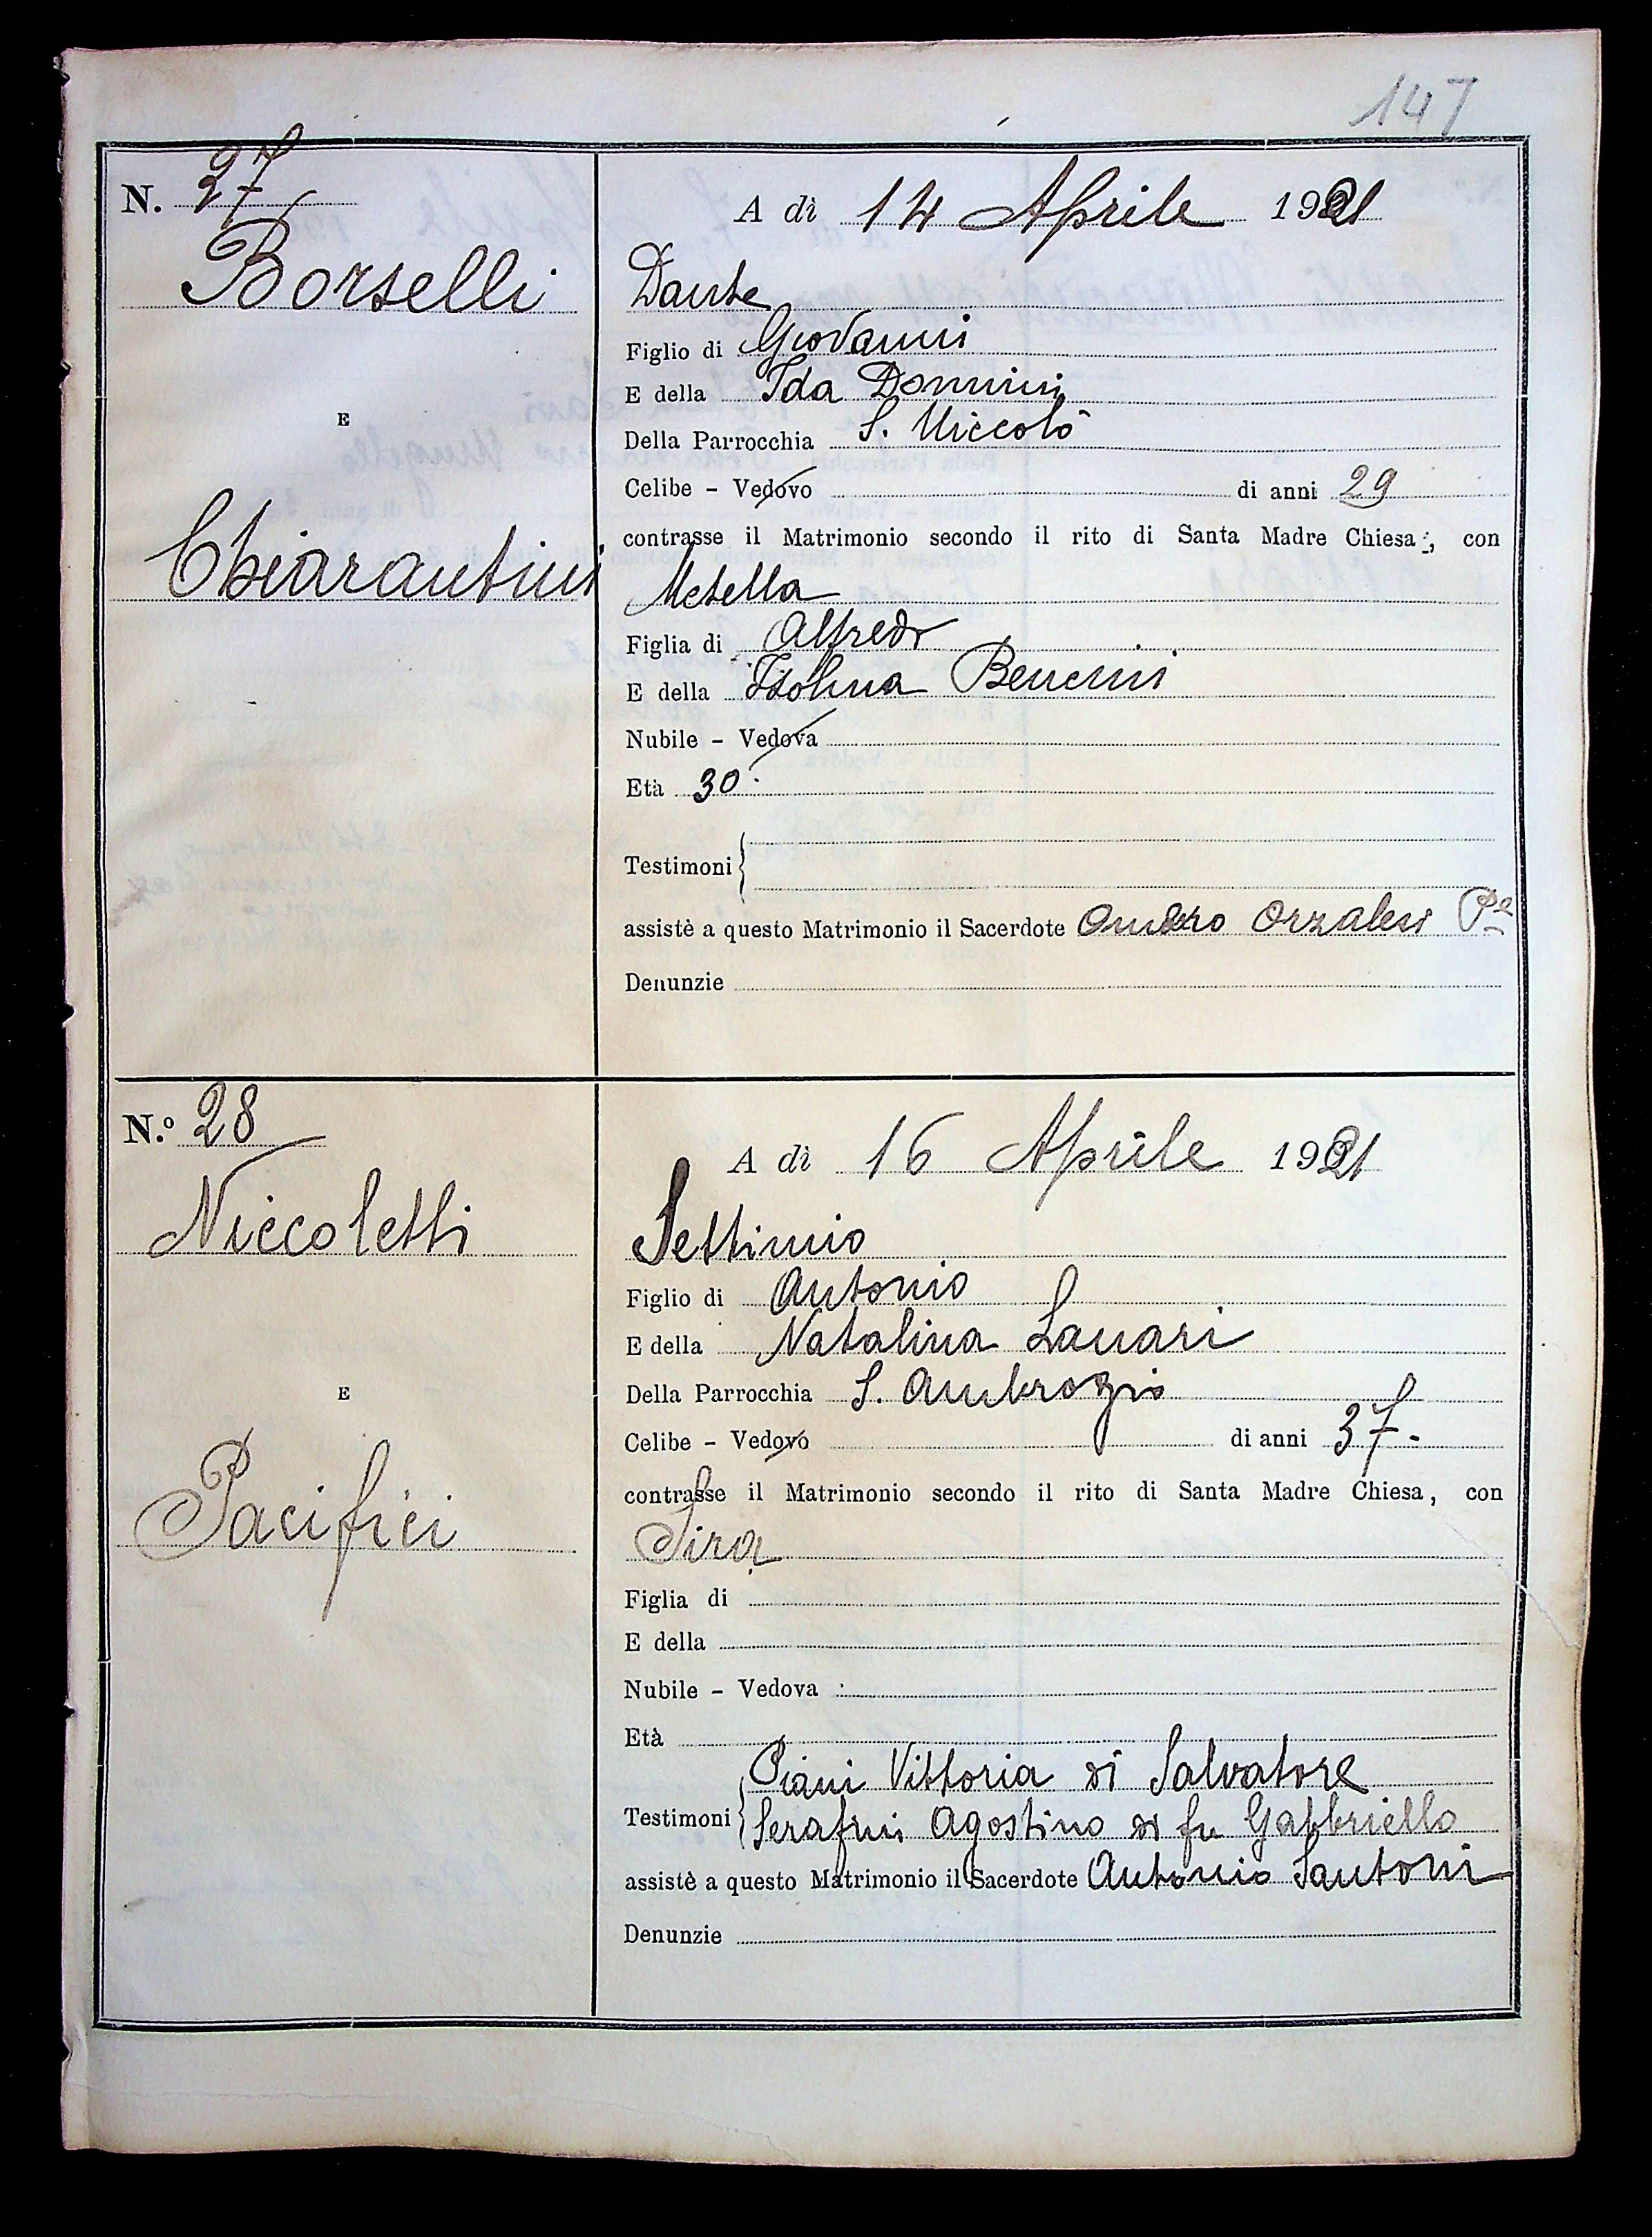 147
N. 27
Borselli
E
Chiarantini
A dì 14 Aprile 1921
Dante
Figlio di Giovanni
E della Ida Donnini
Della Parrocchia S. Niccolò
Celibe - Vedovo di anni 29
contrasse il Matrimonio secondo il rito di Santa Madre Chiesa, con
Metella
Figlia di Alfredo
E della Isolina Bencini
Nubile - Vedova
Età 30
Testimoni
assistè a questo Matrimonio il Sacerdote Omero Orzalesi
Denunzie
N.º 28
Niccoletti
E
Pacifici
A dì 16 Aprile 1921
Settimio
Figlio di Antonio
E della Natalina Lanari
Della Parrocchia S. Ambrogio
Celibe - Vedovo di anni 37.
contrasse il Matrimonio secondo il rito di Santa Madre Chiesa, con
Sira
Figlia di
E della
Nubile - Vedova
Età
Piani Vittoria di Salvatore
Testimoni Serafini Agostino di fu Gabbriello
assistè a questo Matrimonio il Sacerdote Antonio Santoni
Denunzie